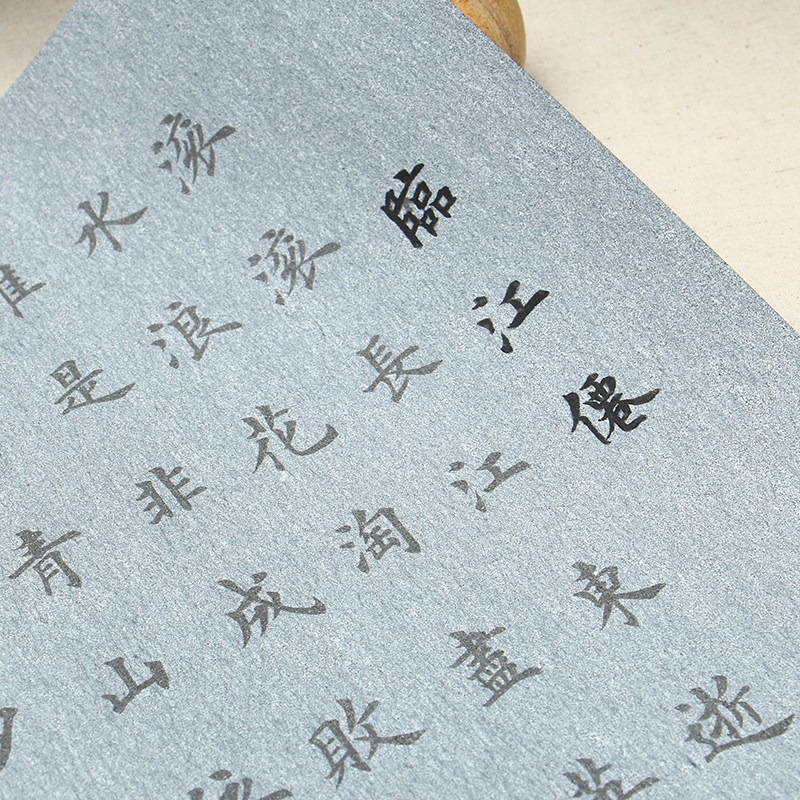 臨江僊
滾滾長江東逝
水浪花淘盡英
是非成敗
青山